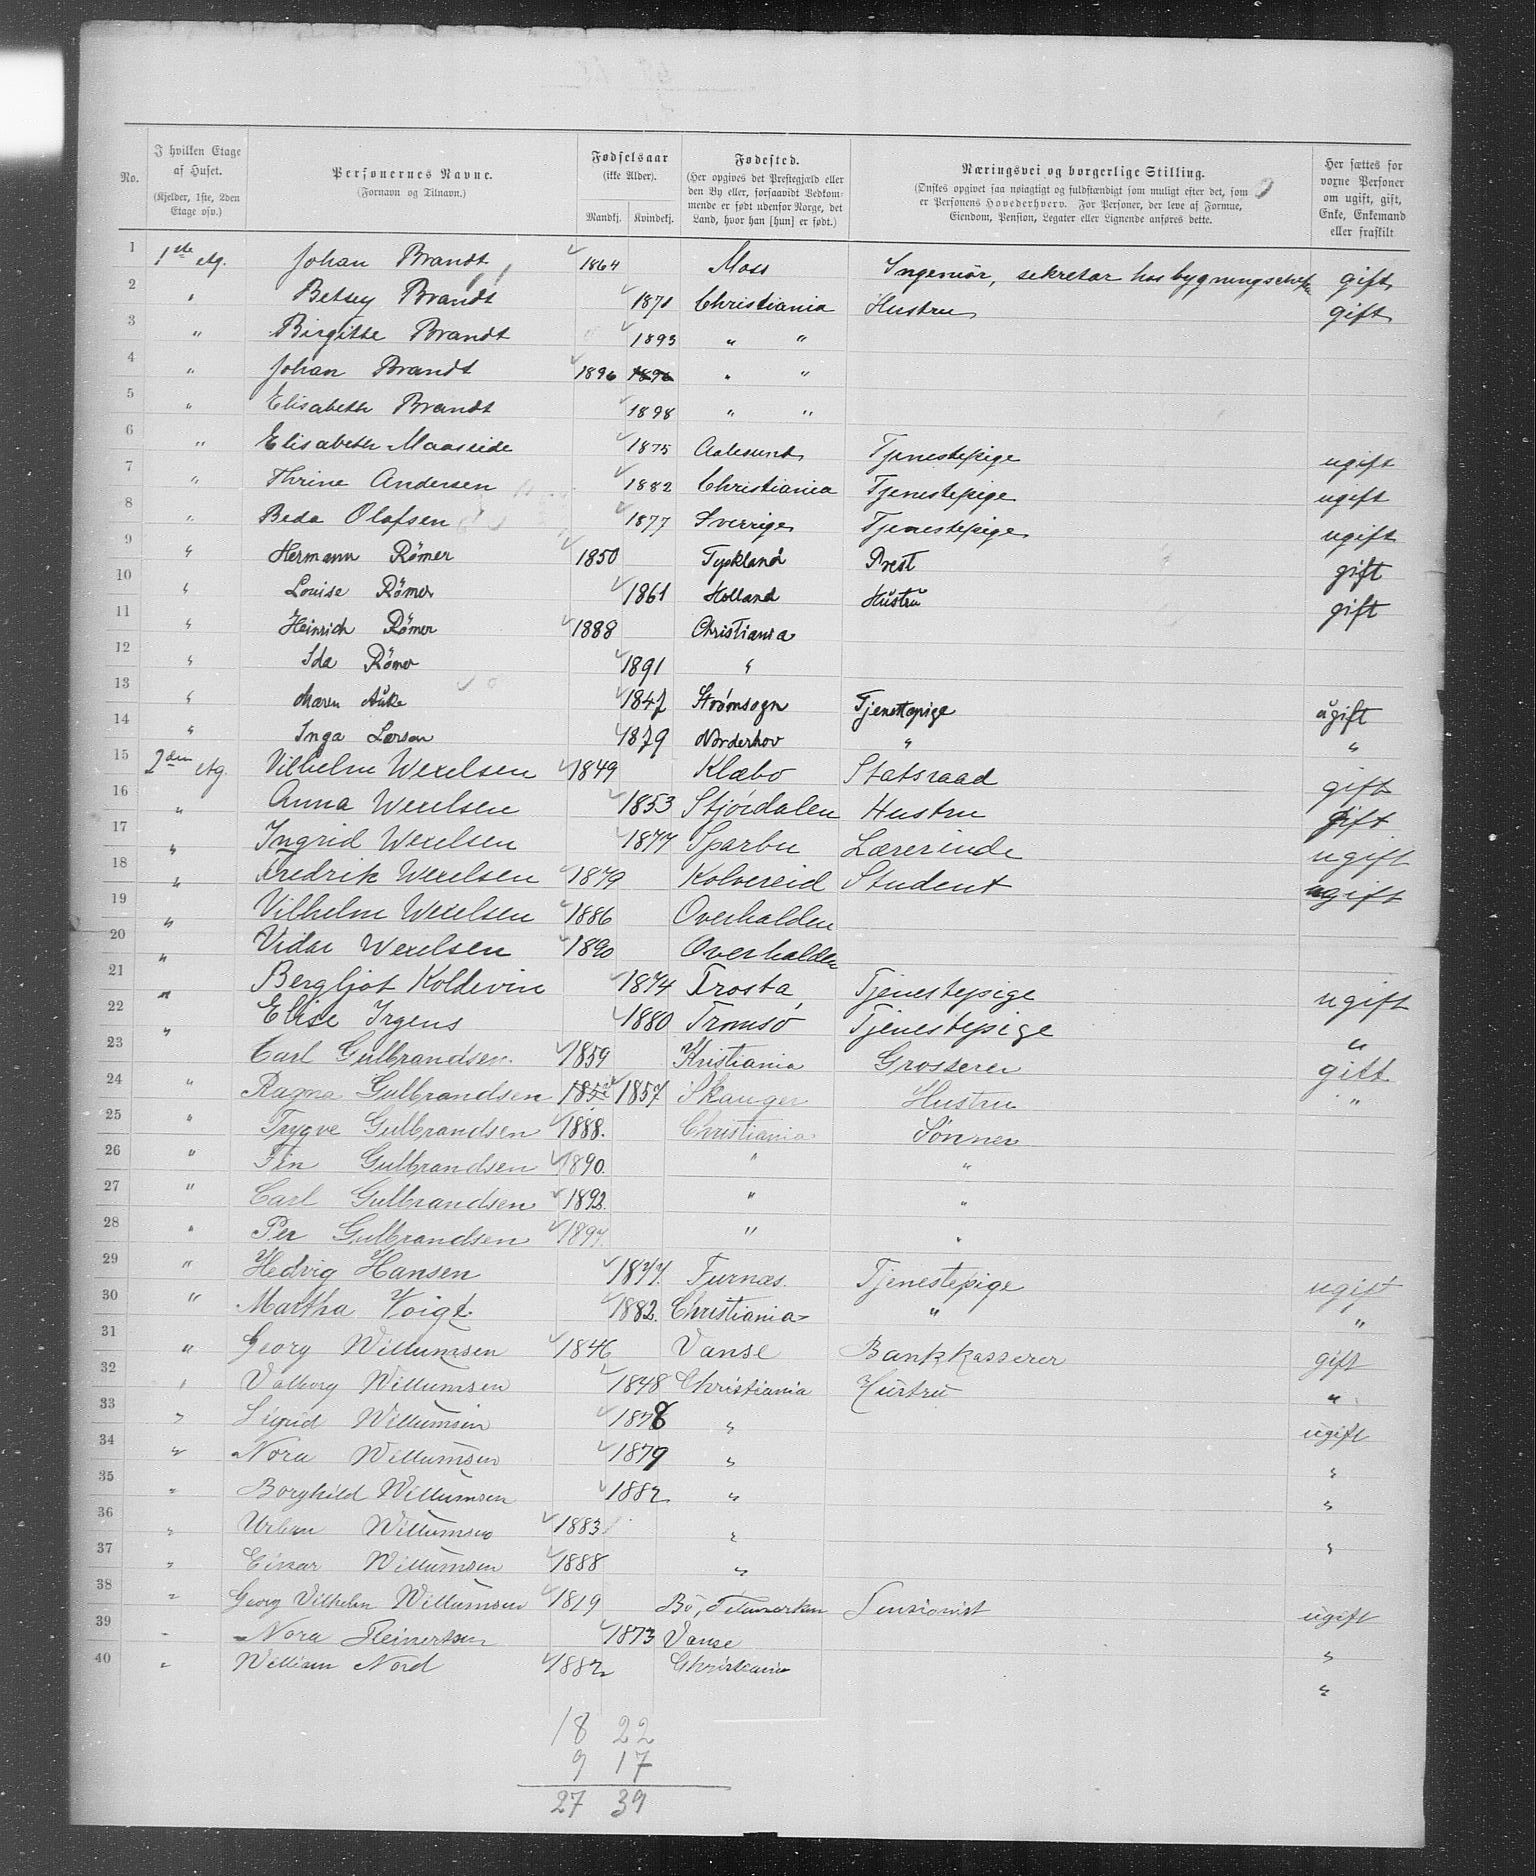 No.
I hvilken Etage af Huset. (Kjelder, 1ste, 2den Etage osv.)
Personernes Navne. (Fornavn og Tilnavn.)
Fødselsaar (ikke Alder). Mandkj. Kvindekj.
Fødested. (Her opgives det Prestegjæld eller den By eller, forsaavidt Vedkommende er født udenfor Norge, det Land, hvor han [hun] er født.)
Næringsvei og borgerlige Stilling. (Ønskes opgivet saa nøiagtigt og fuldstændigt som muligt efter det, som er Personens Hovederhverv. For Personer, der leve af Formue, Eiendom, Pension, Legater eller Lignende anføres dette.
Her sættes for voxne Personer om ugift, gift, Enke, Enkemand eller fraskilt
1 1ste etg. Johan Brandt 1864 Moss Ingeniør, sekretær hos bygningschefen gift
2 " Betsey Brandt 1871 Christiania Hustru gift
3 " Birgitte Brandt 1893 " "
4 " Johan Brandt 1896 1896 " "
5 " Elisabeth Brandt 1898 " "
6 " Elisabeth Maaseide 1875 Aalesund Tjenestepige ugift
7 " Thrine Andersen 1882 Christiania Tjenestepige ugift
8 " Beda Olafsen 1877 Sverrige Tjenestepige ugift
9 " Hermann Römer 1850 Tyskland Prest gift
10 " Louise Römer 1861 Holland Hustru gift
11 " Heinrich Römer 1888 Christiania
12 " Ida Römer 1891 "
13 " Maren Auke 1847 Strømsogn Tjenestepige ugift
14 " Inga Larsen 1879 Norderhov " "
15 2den etg. Vilhelm Wexelsen 1849 Klæbo Statsraad gift
16 " Anna Wexelsen 1853 Stjørdalen Hustru gift
17 " Ingrid Wexelsen 1877 Sparbu Lærerinde ugift
18 " Fredrik Wexelsen 1879 Kolvereid Student ugift
19 " Vilhelm Wexelsen 1886 Overhalden
20 " Vidar Wexelsen 1890 Overhalden
21 " Bergljot Koldevin 1874 Frosta Tjenestepige ugift
22 " Elise Irgens 1880 Tromsö Tjenestepige "
23 Carl Gulbrandsen 1859 Kristiania Grosserer gift
24 " Ragna Gulbrandsen 1857 Skauger Hustru "
25 " Trygve Gulbrandsen 1888. Christiania Sønner
26 " Fin Gulbrandsen 1890. " "
27 " Carl Gulbrandsen 1892. " "
28 " Per Gulbrandsen 1897. " "
29 " Hedvig Hansen 1877. Furnæs. Tjenestepige ugift
30 " Martha Voigt 1882. Christiania " "
31 " Georg Willumsen 1846 Vanse Bankkasserer gift
32 " Valborg Willumsen 1848 Christiania Hustru "
33 " Sigrid Willumsen 1878 " ugift
34 " Nora Willumsen 1879 " "
35 " Borghild Willumsen 1882 " "
36 " Urban Willumsen 1883 " "
37 " Einar Willumsen 1888 "
38 " Georg Vilhelm Willumsen 1819 Bö, Telemarken Pensionist ugift
39 " Nora Reinertsen 1873 Vanse "
40 " William Nord 1882 Christiania "
18 22
9 17
27 39